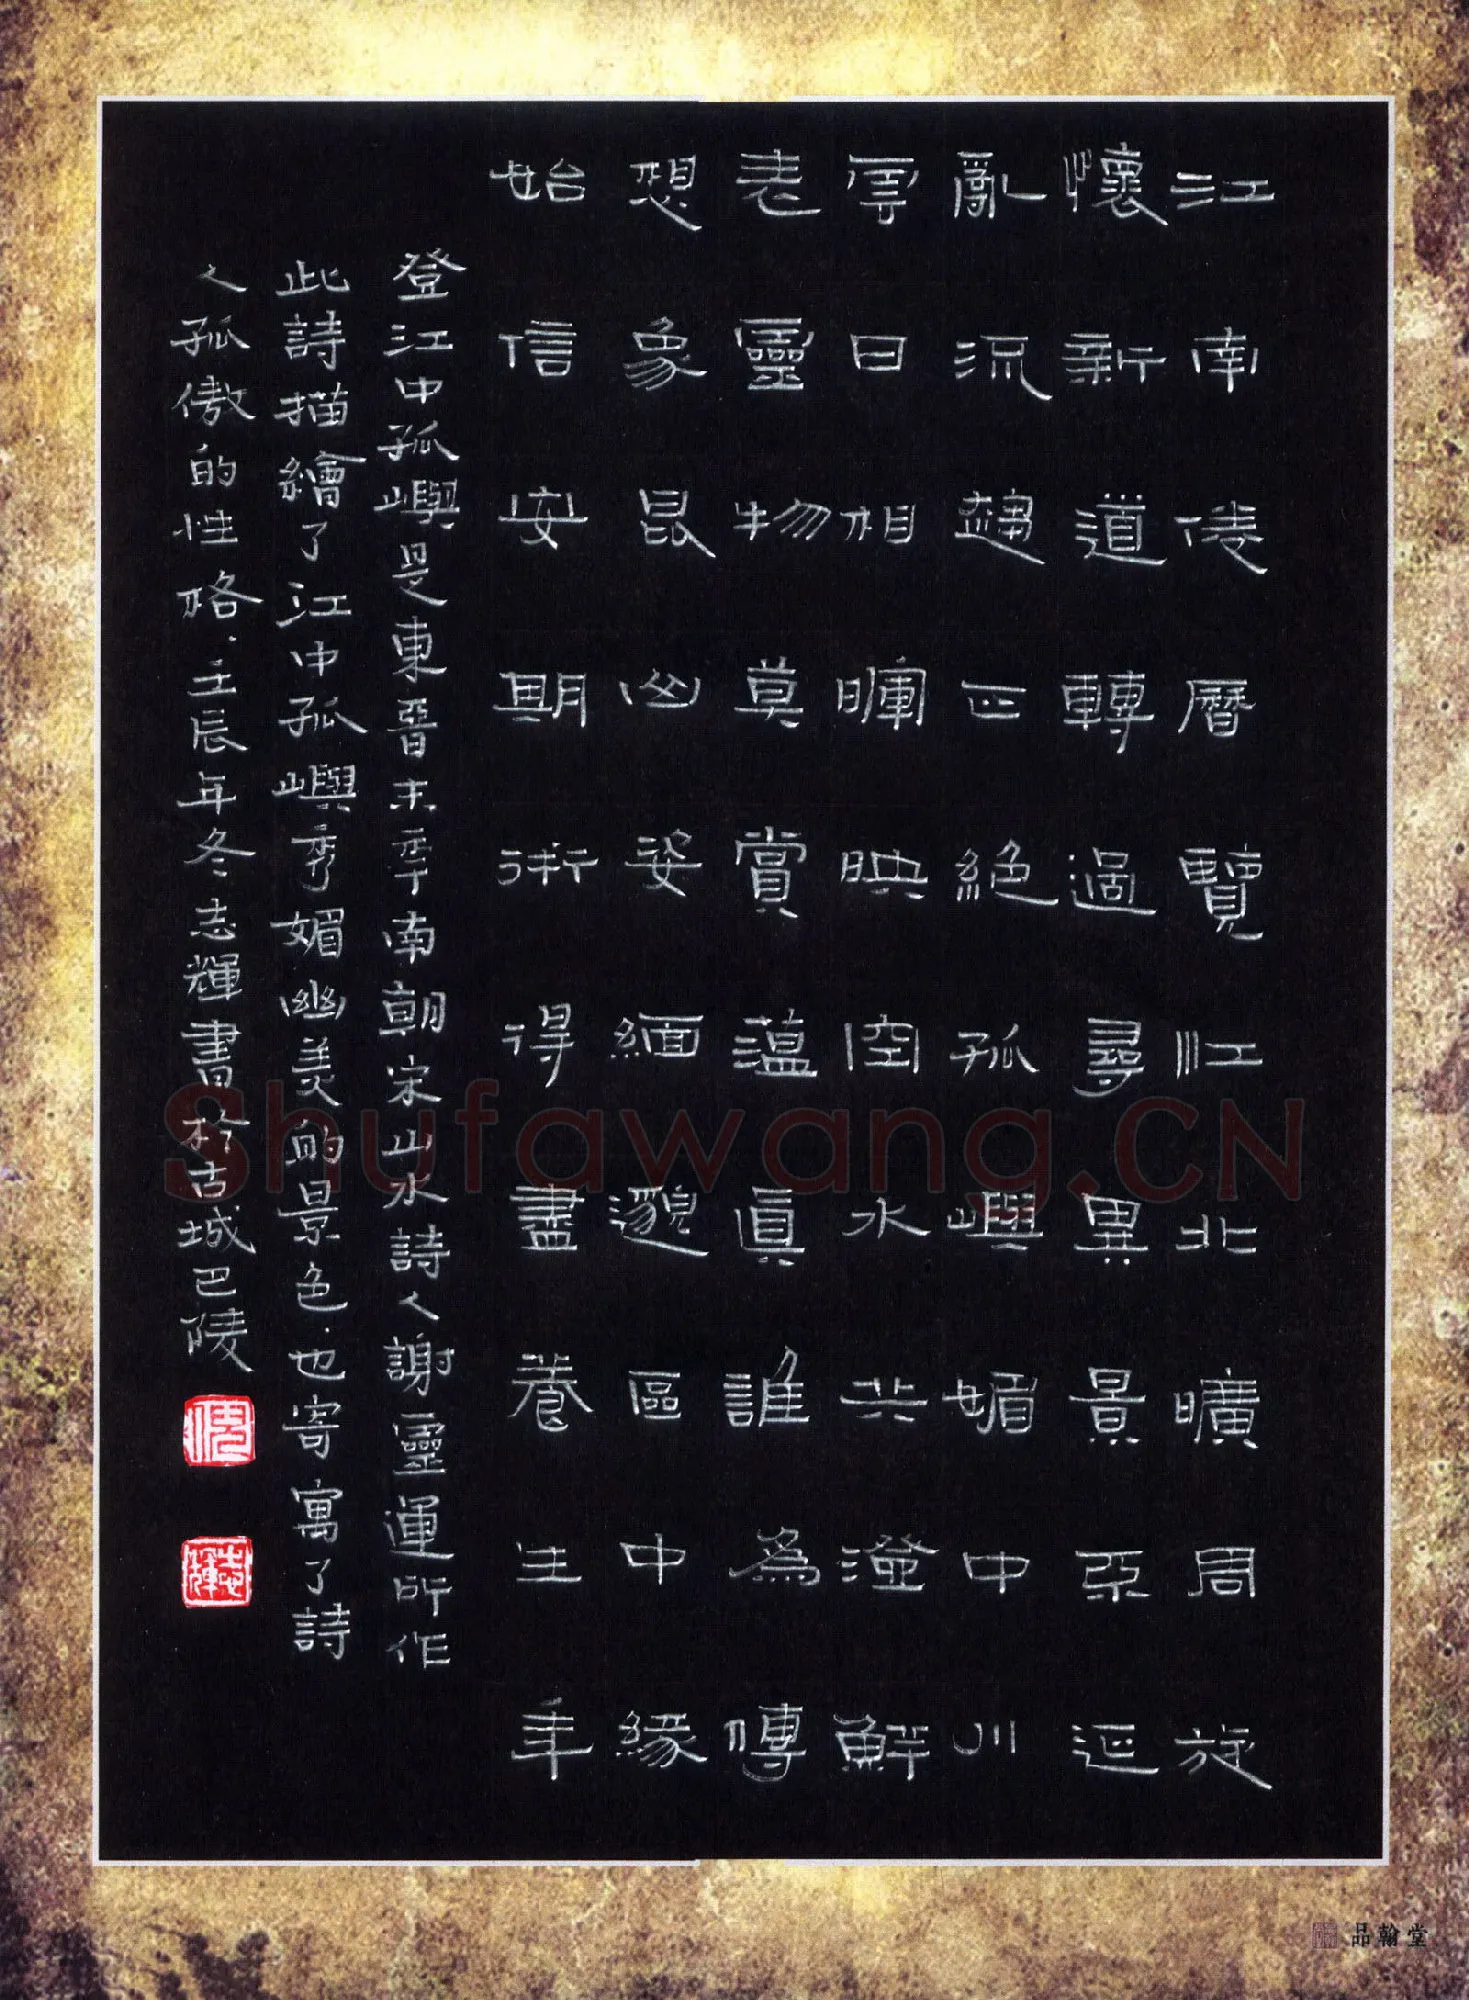 江南倦曆覽江北曠周旋
懷新道轉迥尋異景不延
亂流趨正絕孤嶼媚中川
雲日相暉映空水共澄鮮
表靈物莫賞薀真誰為傳
想象昆山姿緬邈區中緣
始信安期術得盡養生年
登江中孤嶼是東晉末年南朝宋山水詩人謝靈運所作
此詩描繪了江中孤嶼秀媚幽美的景色.也寄寓了詩
人孤傲的性格.壬辰年冬志輝書於古城巴陵
志輝
Shufawang.CN
品翰堂